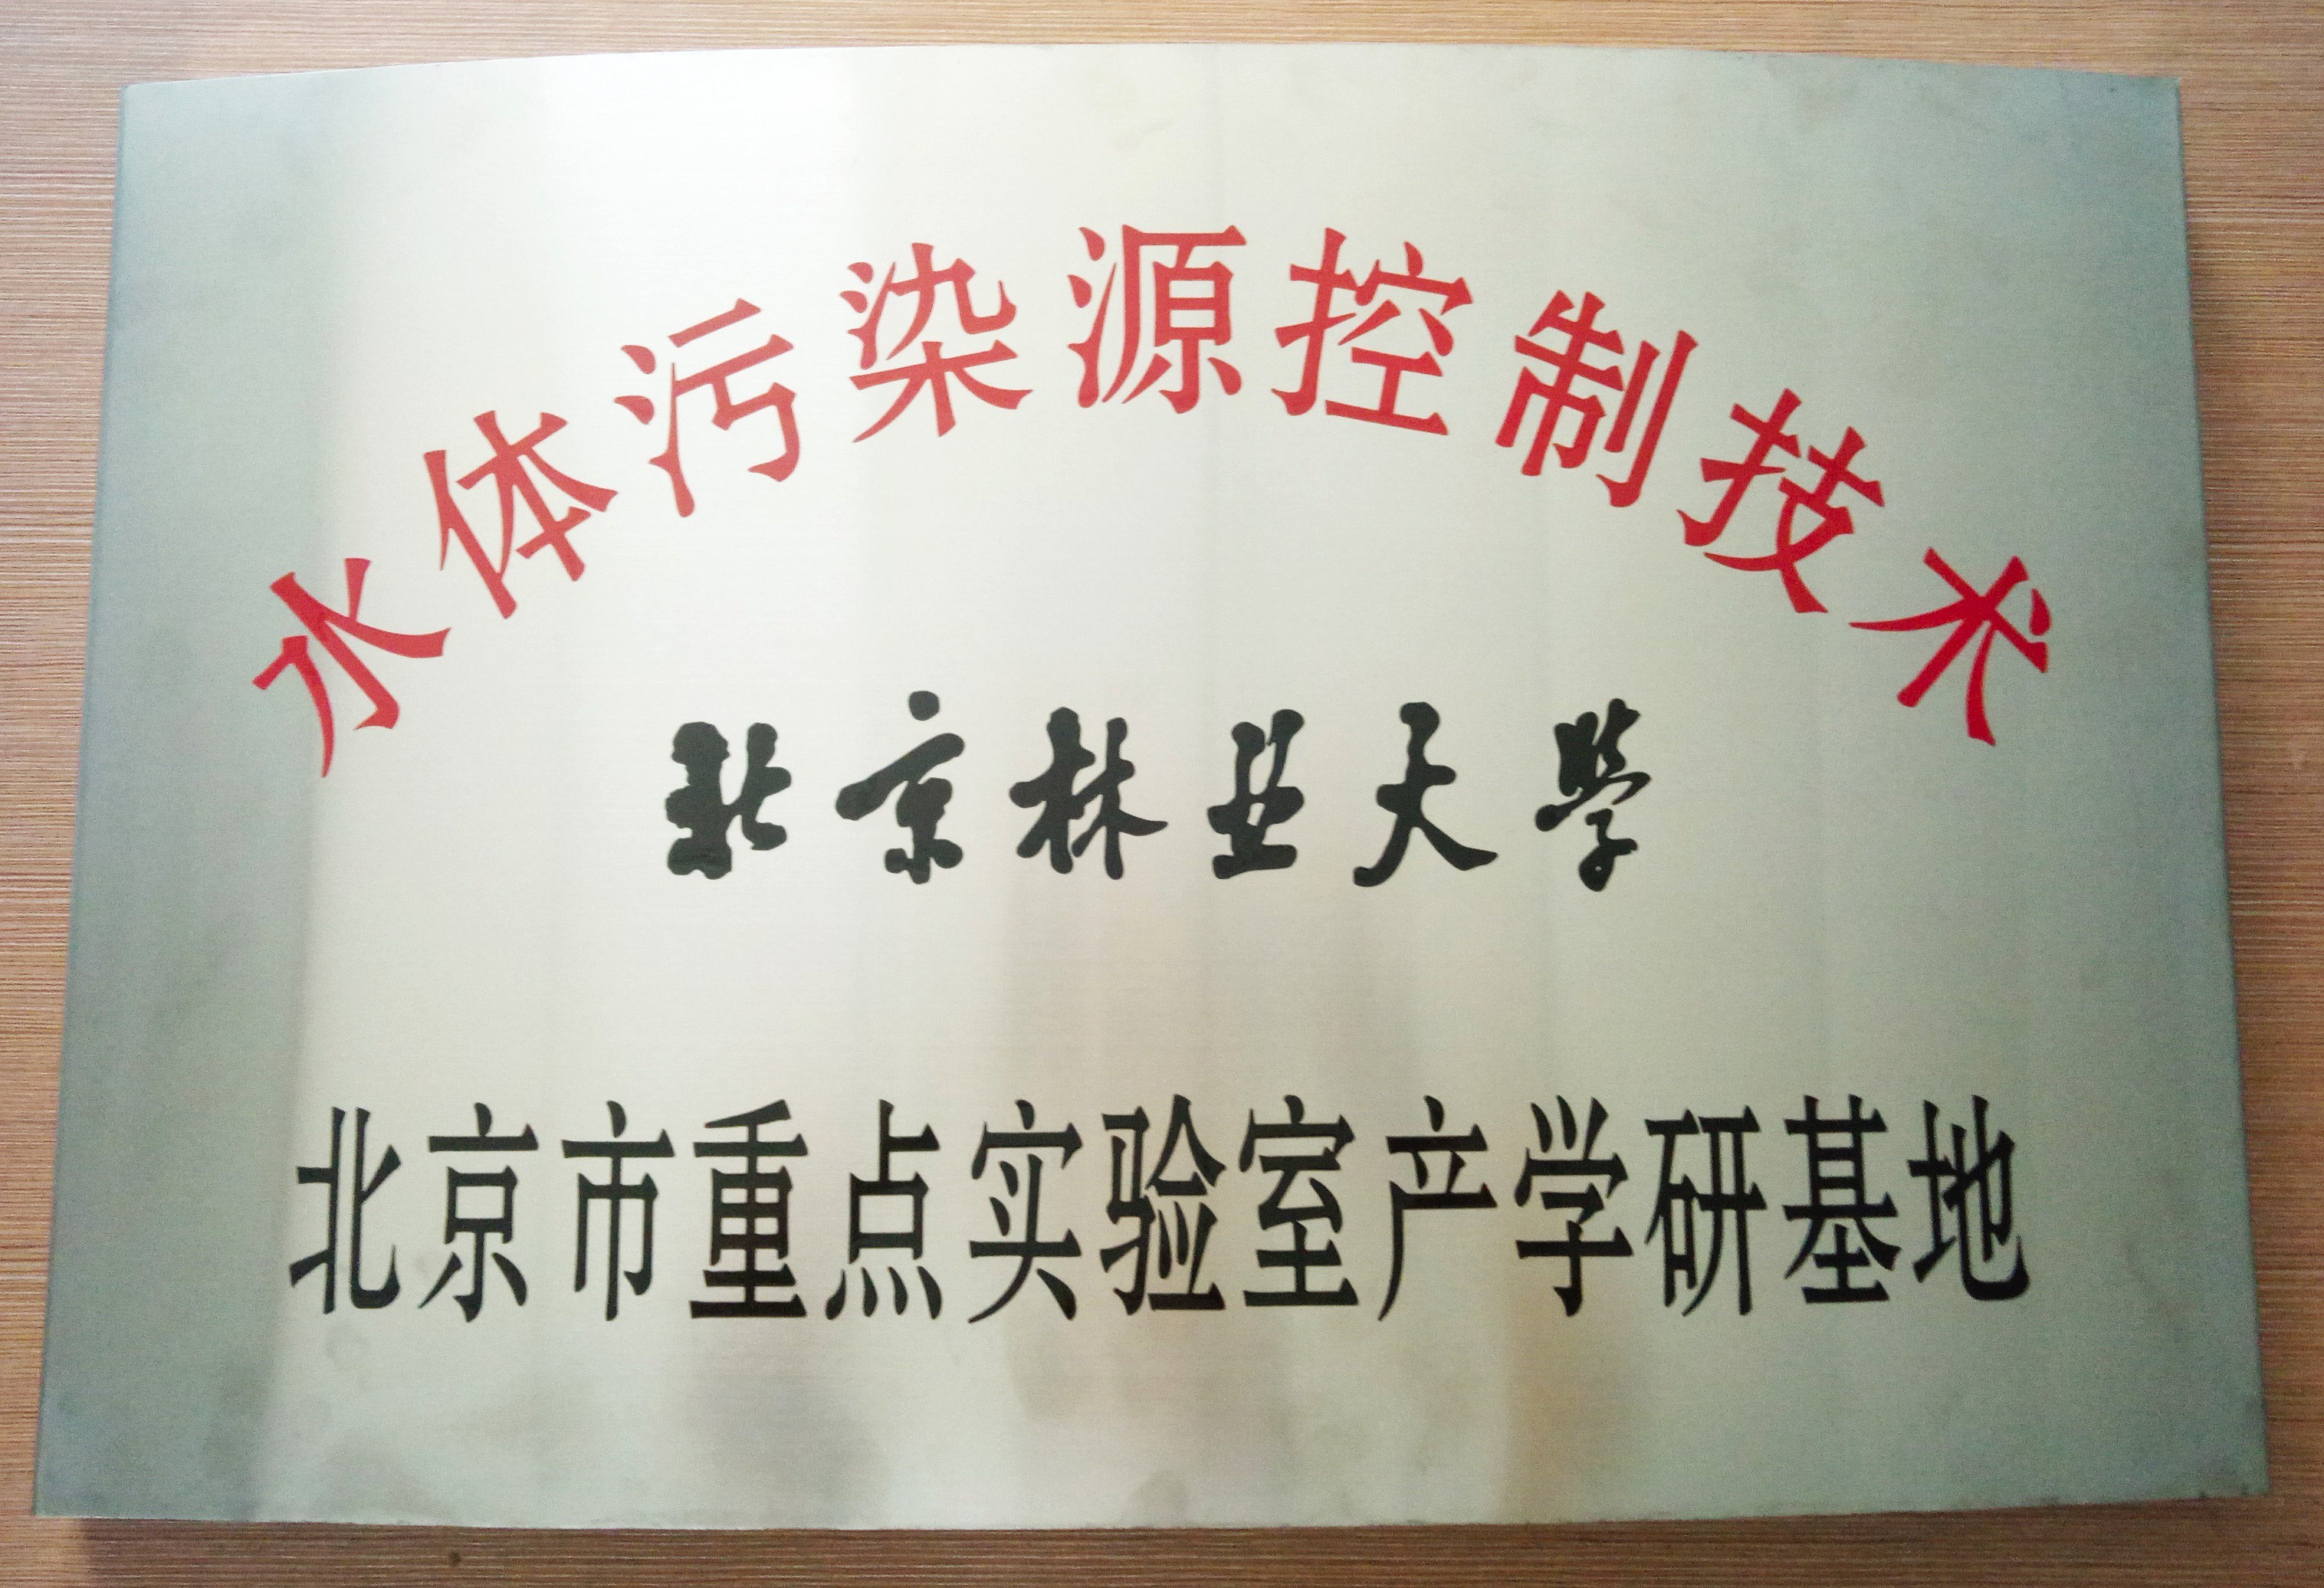 水体污染源控制技术
北京林业大学
北京市重点实验室产学研基地